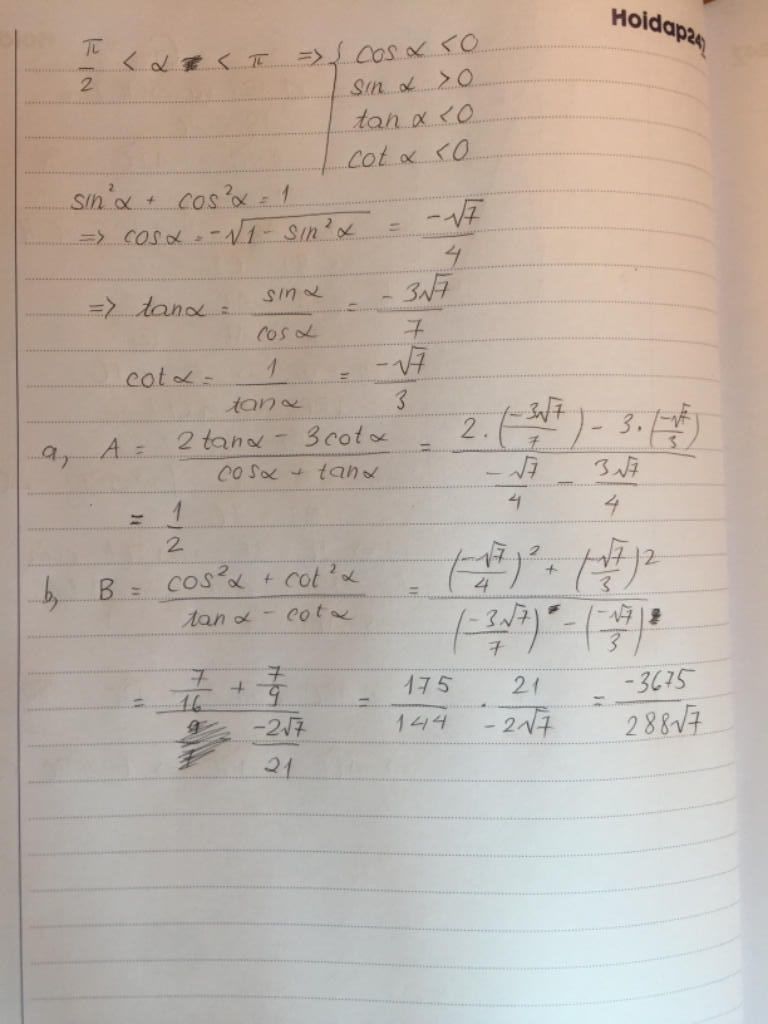 Hoidap247
π/2 < α < π => { cos α < 0
sin α > 0
tan α < 0
cot α < 0
sin²α + cos²α = 1
=> cosα = -√(1 - sin²α) = -√7/4
=> tanα = sinα/cosα = -3√7/7
cotα = 1/tanα = -√7/3
a, A = (2tanα - 3cotα)/(cosα + tanα) = (2.(-3√7/7) - 3.(-√7/3))/(-√7/4 - 3√7/4)
= 1/2
b, B = (cos²α + cot²α)/(tanα - cotα) = ((-√7/4)² + (-√7/3)²)/((-3√7/7) - (-√7/3))
= (7/16 + 7/9)/(-2√7/21) = 175/144 . 21/-2√7 = -3675/288√7